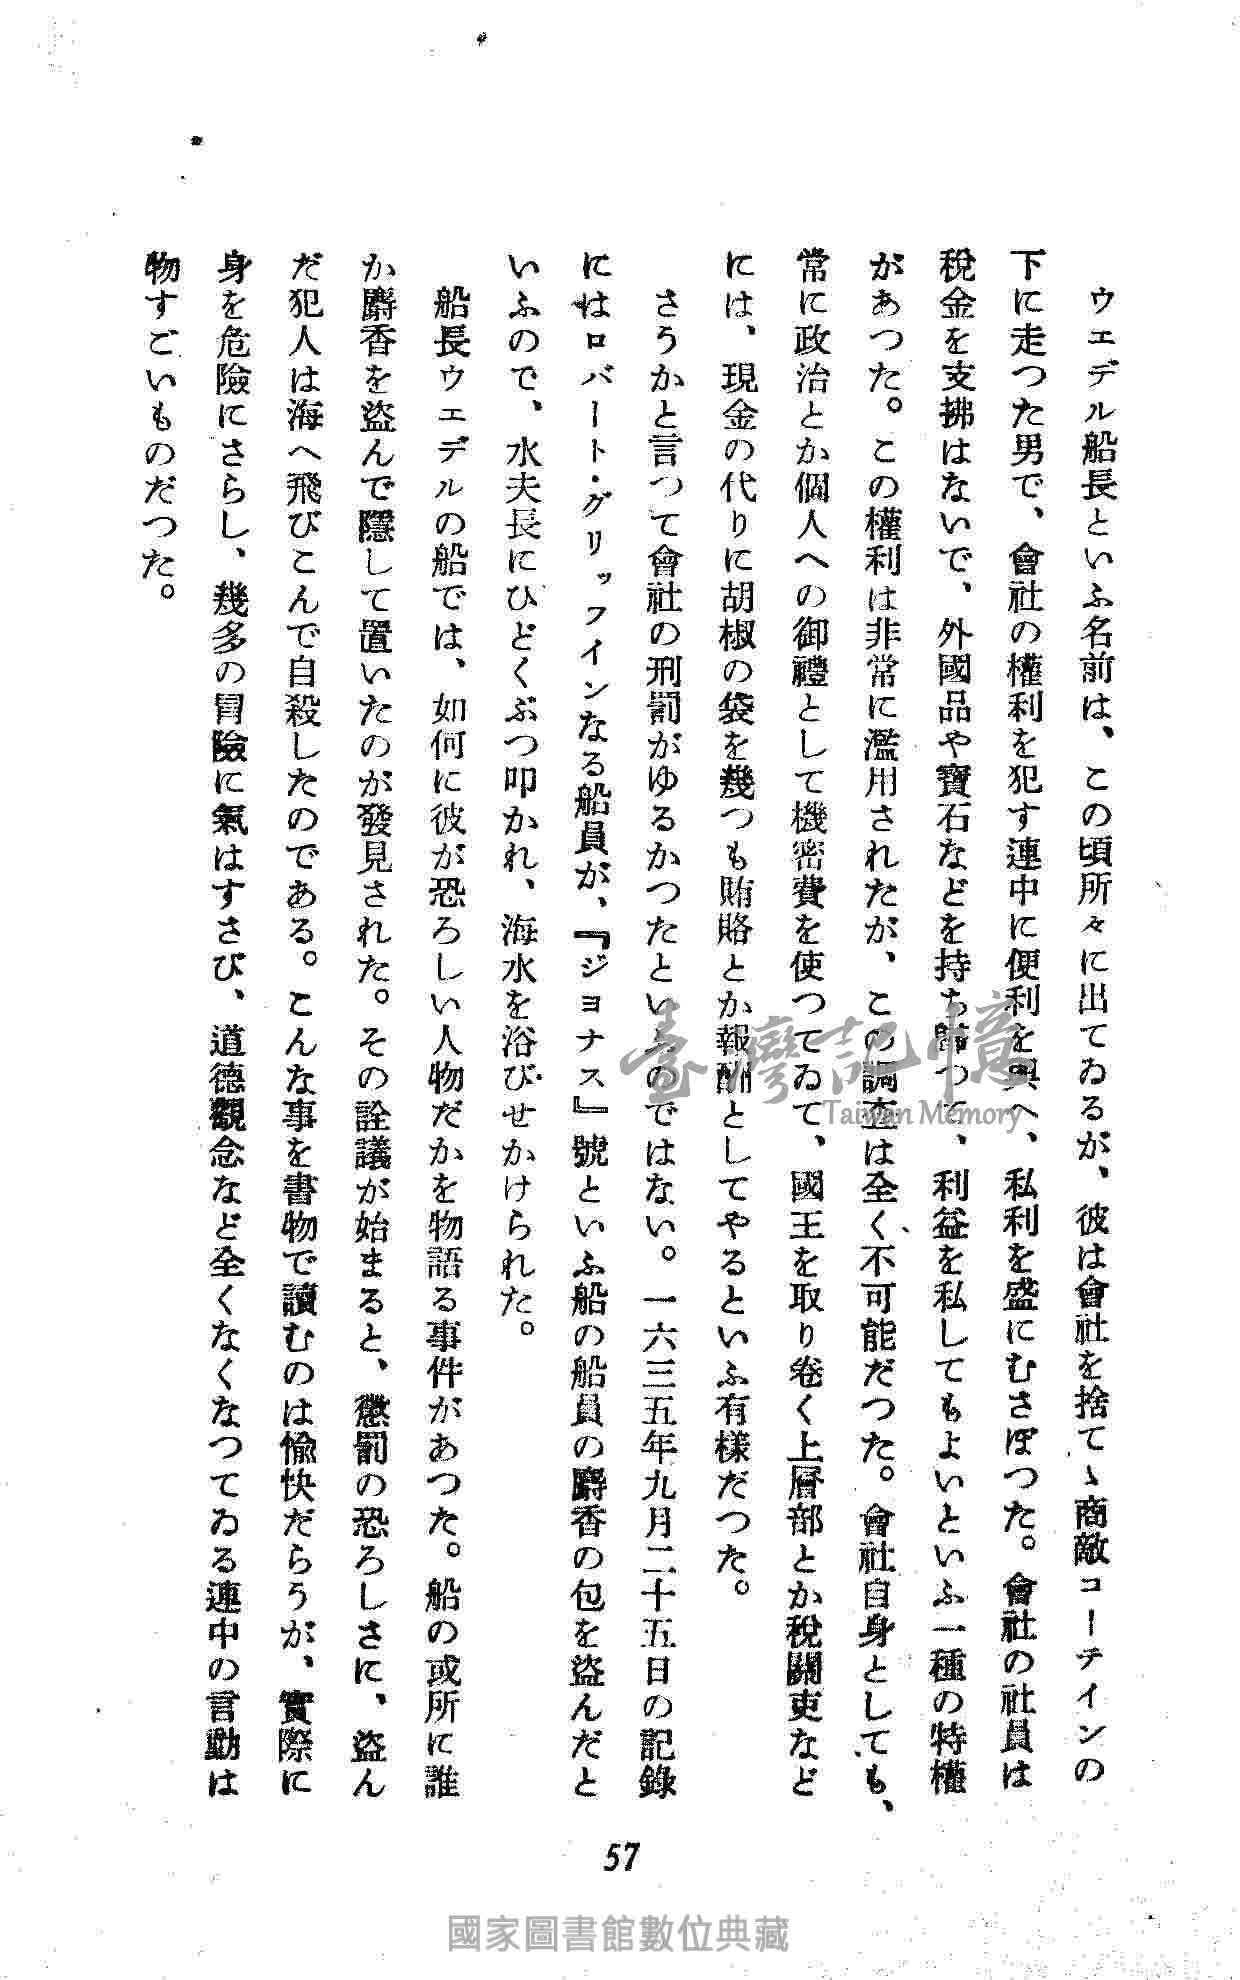 ウエデル船長といふ名前は、この頃所々に出てゐるが、彼は會社を捨てゝ商敵コーチインの
下に走つた男で、會社の權利を犯す連中に便利を與へ、私利を盛にむさぼつた。會社の社員は
稅金を支拂はないで、外國品や寶石などを持ち歸つて、利益を私してもよいといふ一種の特權
があつた。この權利は非常に濫用されたが、この調査は全く不可能だつた。會社自身としても、
常に政治とか個人への御禮として機密費を使つてゐて、國王を取り卷く上層部とか稅關吏など
には、現金の代りに胡椒の袋を幾つも賄賂とか報酬としてやるといふ有樣だつた。
さうかと言つて會社の刑罰がゆるかつたといふのではない。一六三五年九月二十五日の記錄
にはロバート・グリッフインなる船員が、『ジョナス』號といふ船の船員の麝香の包を盜んだと
いふので、水夫長にひどくぶつ叩かれ、海水を浴びせかけられた。
船長ウエデルの船では、如何に彼が恐ろしい人物だかを物語る事件があつた。船の或所に誰
か麝香を盜んで隱して置いたのが發見された。その詮議が始まると、懲罰の恐ろしさに、盜ん
だ犯人は海へ飛びこんで自殺したのである。こんな事を書物で讀むのは愉快だらうが、實際に
身を危險にさらし、幾多の冒險に氣はすさび、道德觀念など全くなくなつてゐる連中の言動は
物すごいものだつた。
57
臺灣記憶
Taiwan Memory
國家圖書館數位典藏